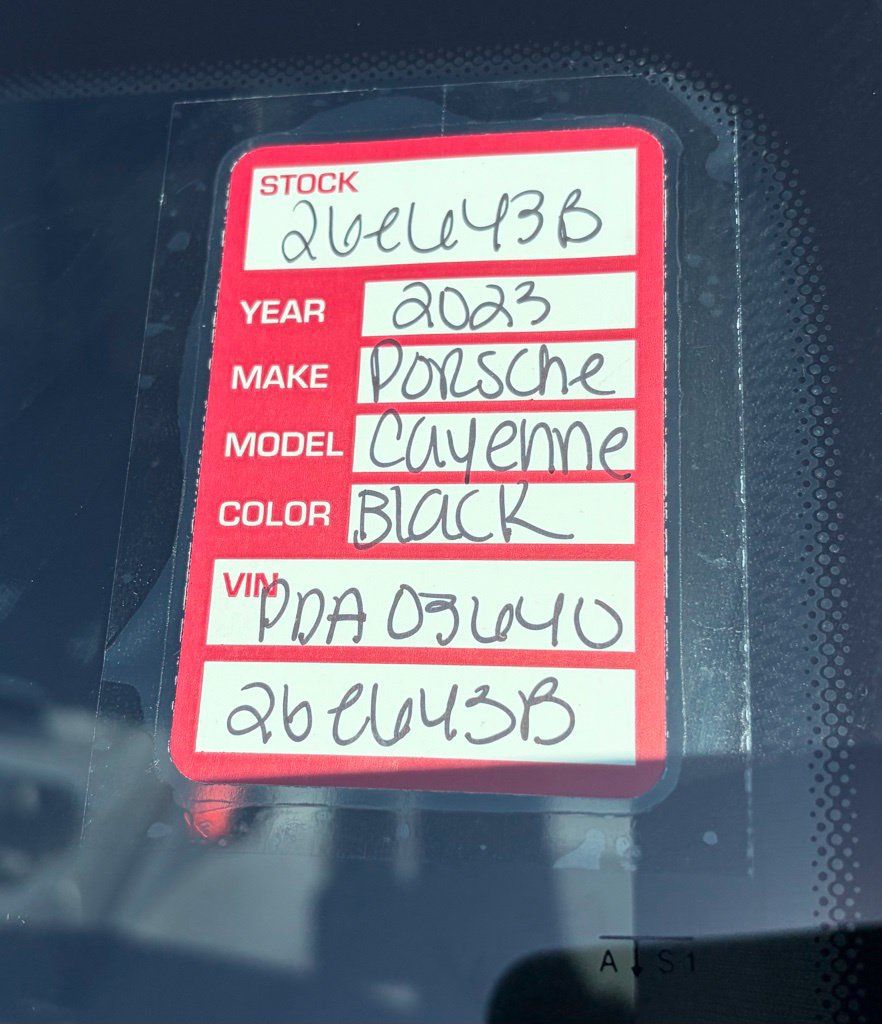 STOCK
26e643B
YEAR 2023
MAKE Porsche
MODEL Cayenne
COLOR Black
VIN
PDA03640
26e643B
A S1